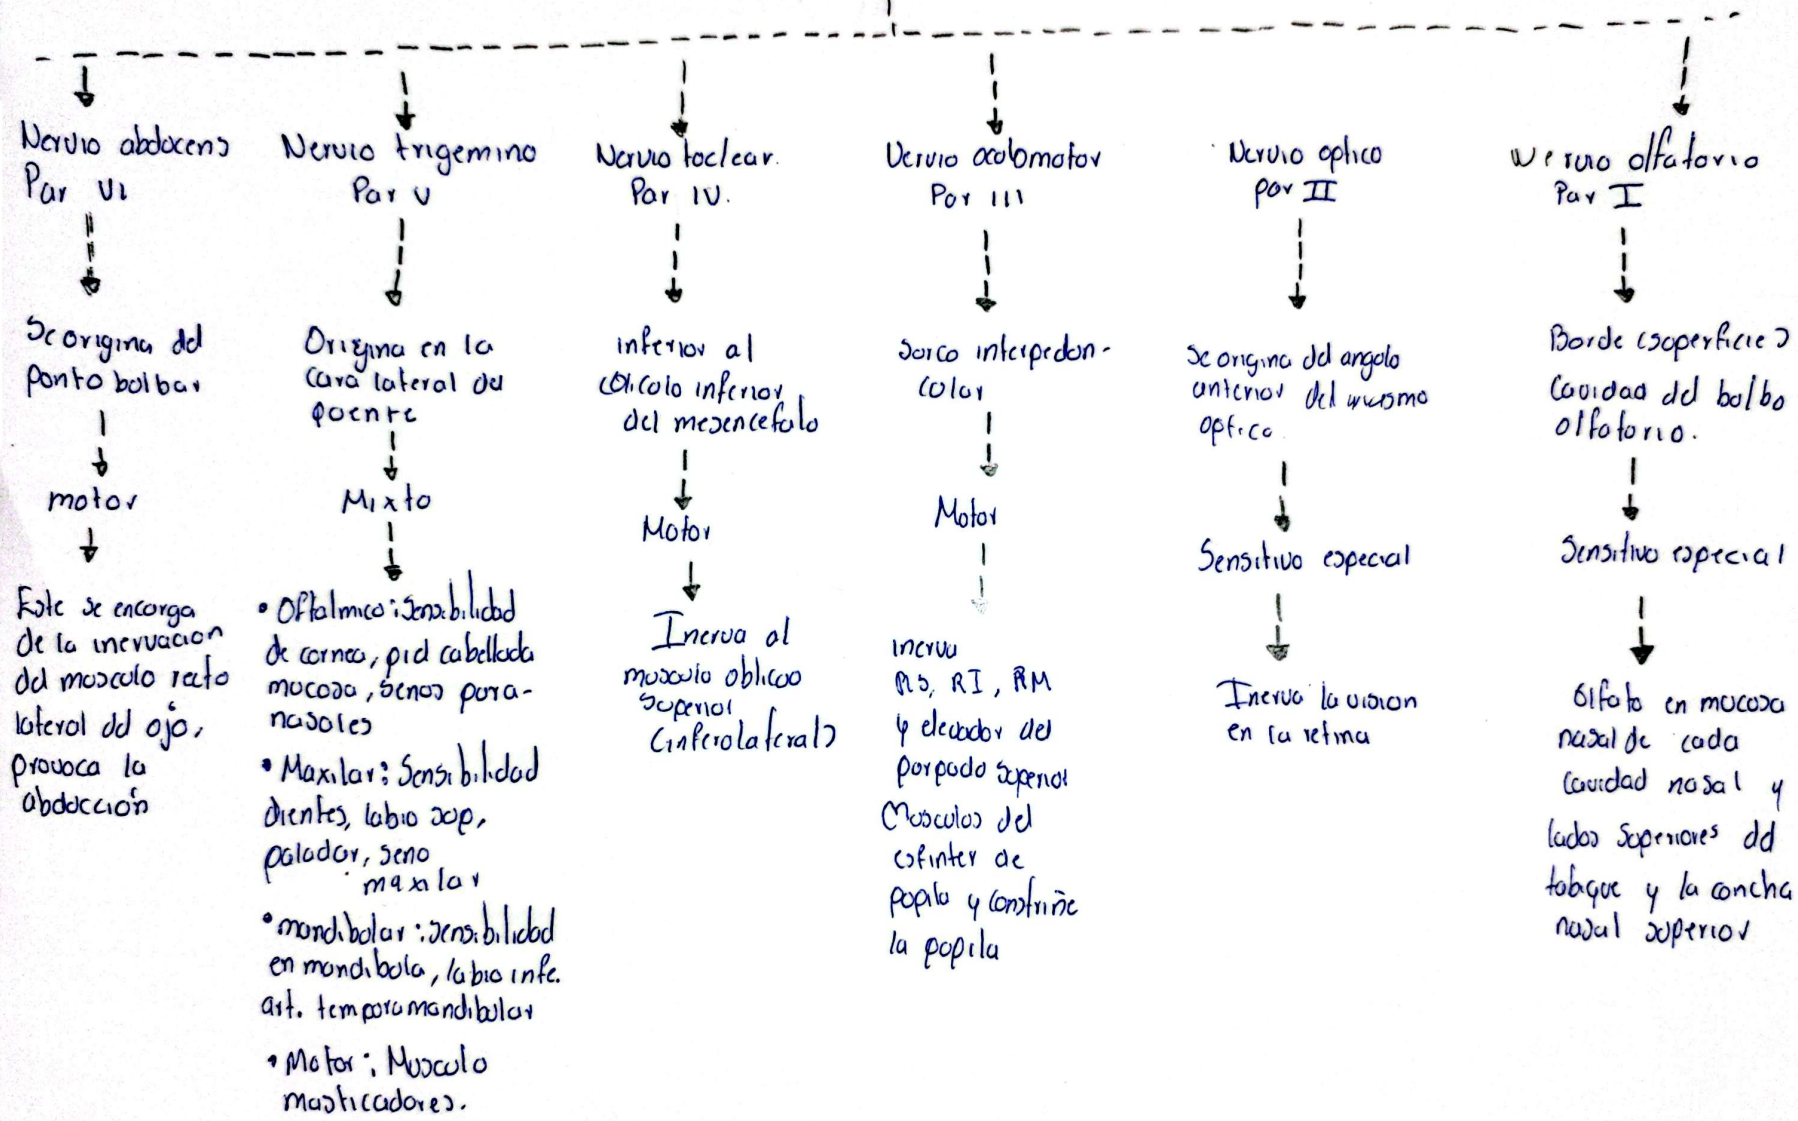 Nervio abducens
Par VI
Se origina del
ponto bulbar
motor
Este se encarga
de la inervacion
del musculo recto
lateral del ojo,
provoca la
abducción
Nervio trigemino
Par V
Origina en la
cara lateral del
puente
Mixto
• Oftalmico: Sensibilidad
de cornea, piel cabelluda
mucosa, senos para-
nasales
• Maxilar: Sensibilidad
dientes, labio sup,
paladar, seno
maxilar
• mandibular: sensibilidad
en mandibula, labio infe.
art. temporomandibular
• Motor: Musculo
masticadores.
Nervio toclear.
Par IV.
inferior al
colículo inferior
del mesencefalo
Motor
Inerva al
musculo oblicuo
superior
(inferolateral)
Nervio oculomotor
Par III
surco interpedun-
cular
Motor
inerva
RS, RI, RM
y elevador del
parpado superior
Musculos del
esfinter de
pupila y constriñe
la pupila
Nervio optico
par II
Se origina del angulo
anterior del
optico
Sensitivo especial
Inerva la vision
en la retina
Nervio olfatorio
Par I
Borde (superficie)
Cavidad del bulbo
olfatorio.
Sensitivo especial
Olfato en mucosa
nasal de cada
cavidad nasal y
lados superiores del
tabique y la concha
nasal superior